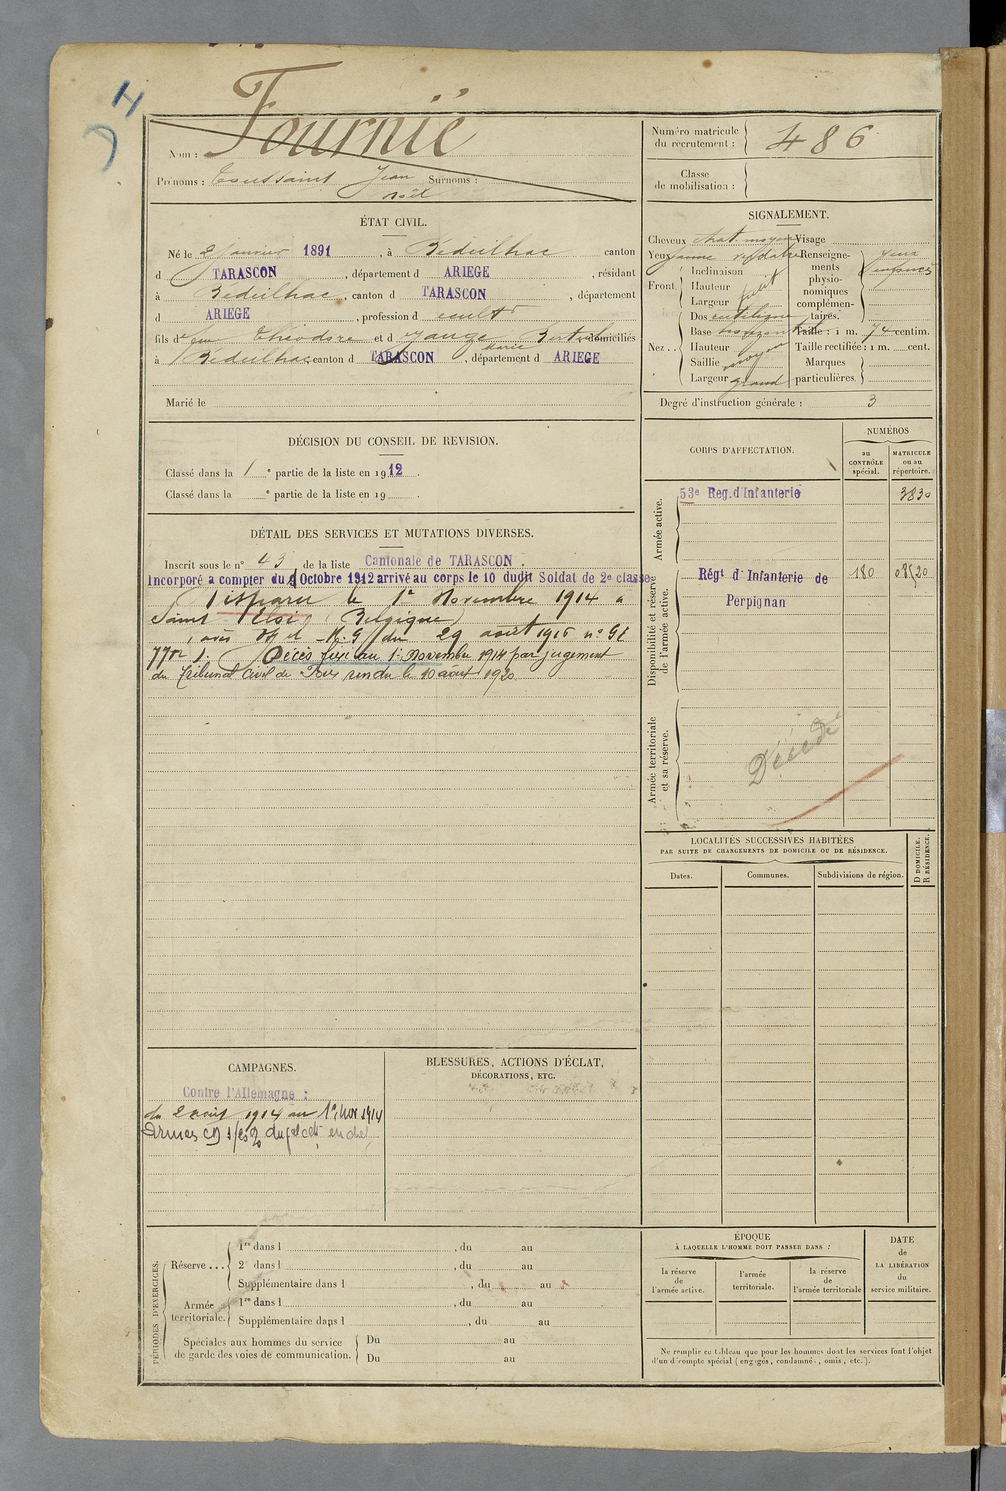 H
Fournié
Nom :
Prénoms : Toussaint Jean Surnoms :
Noël
Numéro matricule
du recrutement :
486
Classe
de mobilisation :
ÉTAT CIVIL.
Né le 2 janvier 1891, à Bédeilhac canton
d TARASCON, département d ARIEGE, résidant
à Bédeilhac, canton d TARASCON, département
d ARIEGE, profession d cultr
fils d feu Théodore et d Gauze Marie domiciliés
à Bédeilhac canton d TARASCON, département d ARIEGE
Marié le
SIGNALEMENT.
Cheveux chat. moyen Visage
Yeux jaune verdâtre
Front.
Inclinaison
Hauteur
Largeur petit
Nez ..
Dos rectiligne
Base horizontale
Hauteur
Saillie moyen
Largeur grand
Renseigne-
ments
physio-
nomiques
complémen-
taires.
yeux
enfoncés
Taille : 1 m. 74 centim.
Taille rectifiée : 1 m. cent.
Marques
particulières.
Degré d'instruction générale : 3
DÉCISION DU CONSEIL DE REVISION.
Classé dans la 1e partie de la liste en 1912.
Classé dans la e partie de la liste en 19 .
CORPS D'AFFECTATION.
NUMÉROS
au
CONTRÔLE
spécial.
MATRICULE
ou au
répertoire.
Armée active.
53e Reg. d'Infanterie
3830
Disponibilité et réserve
de l'armée active.
Régt d'Infanterie de
Perpignan
180
Armée territoriale
et sa réserve.
Décédé
DÉTAIL DES SERVICES ET MUTATIONS DIVERSES.
Inscrit sous le n° 43 de la liste Cantonale de TARASCON.
Incorporé a compter du 9 Octobre 1912 arrivé au corps le 10 dudit Soldat de 2e classe
Disparu le 1er Novembre 1914 à
Saint Eloi (Belgique)
avis M.G. du 29 août 1916 n°
Décès fixé au 1er Novembre 1914 par jugement
du Tribunal Civil de Foix rendu le 10 août 1920
LOCALITÉS SUCCESSIVES HABITÉES
PAR SUITE DE CHANGEMENTS DE DOMICILE OU DE RÉSIDENCE.
D DOMICILE.
R RÉSIDENCE.
Dates.
Communes.
Subdivisions de région.
CAMPAGNES.
Contre l'Allemagne :
du 2 août 1914 au 1er nov 1914
Armées
BLESSURES, ACTIONS D'ÉCLAT,
DÉCORATIONS, ETC.
PÉRIODES D'EXERCICES.
Réserve ...
1re dans l , du au
2e dans l , du au
Supplémentaire dans l , du au
Armée
territoriale.
1re dans l , du au
Supplémentaire dans l , du au
Spéciales aux hommes du service
de garde des voies de communication.
Du au
Du au
ÉPOQUE
À LAQUELLE L'HOMME DOIT PASSER DANS :
la réserve
de
l'armée active.
l'armée
territoriale.
la réserve
de
l'armée territoriale
DATE
de
LA LIBÉRATION
du
service militaire.
Ne remplir ce tableau que pour les hommes dont les services font l'objet
d'un décompte spécial (engagés, condamnés, omis, etc.).